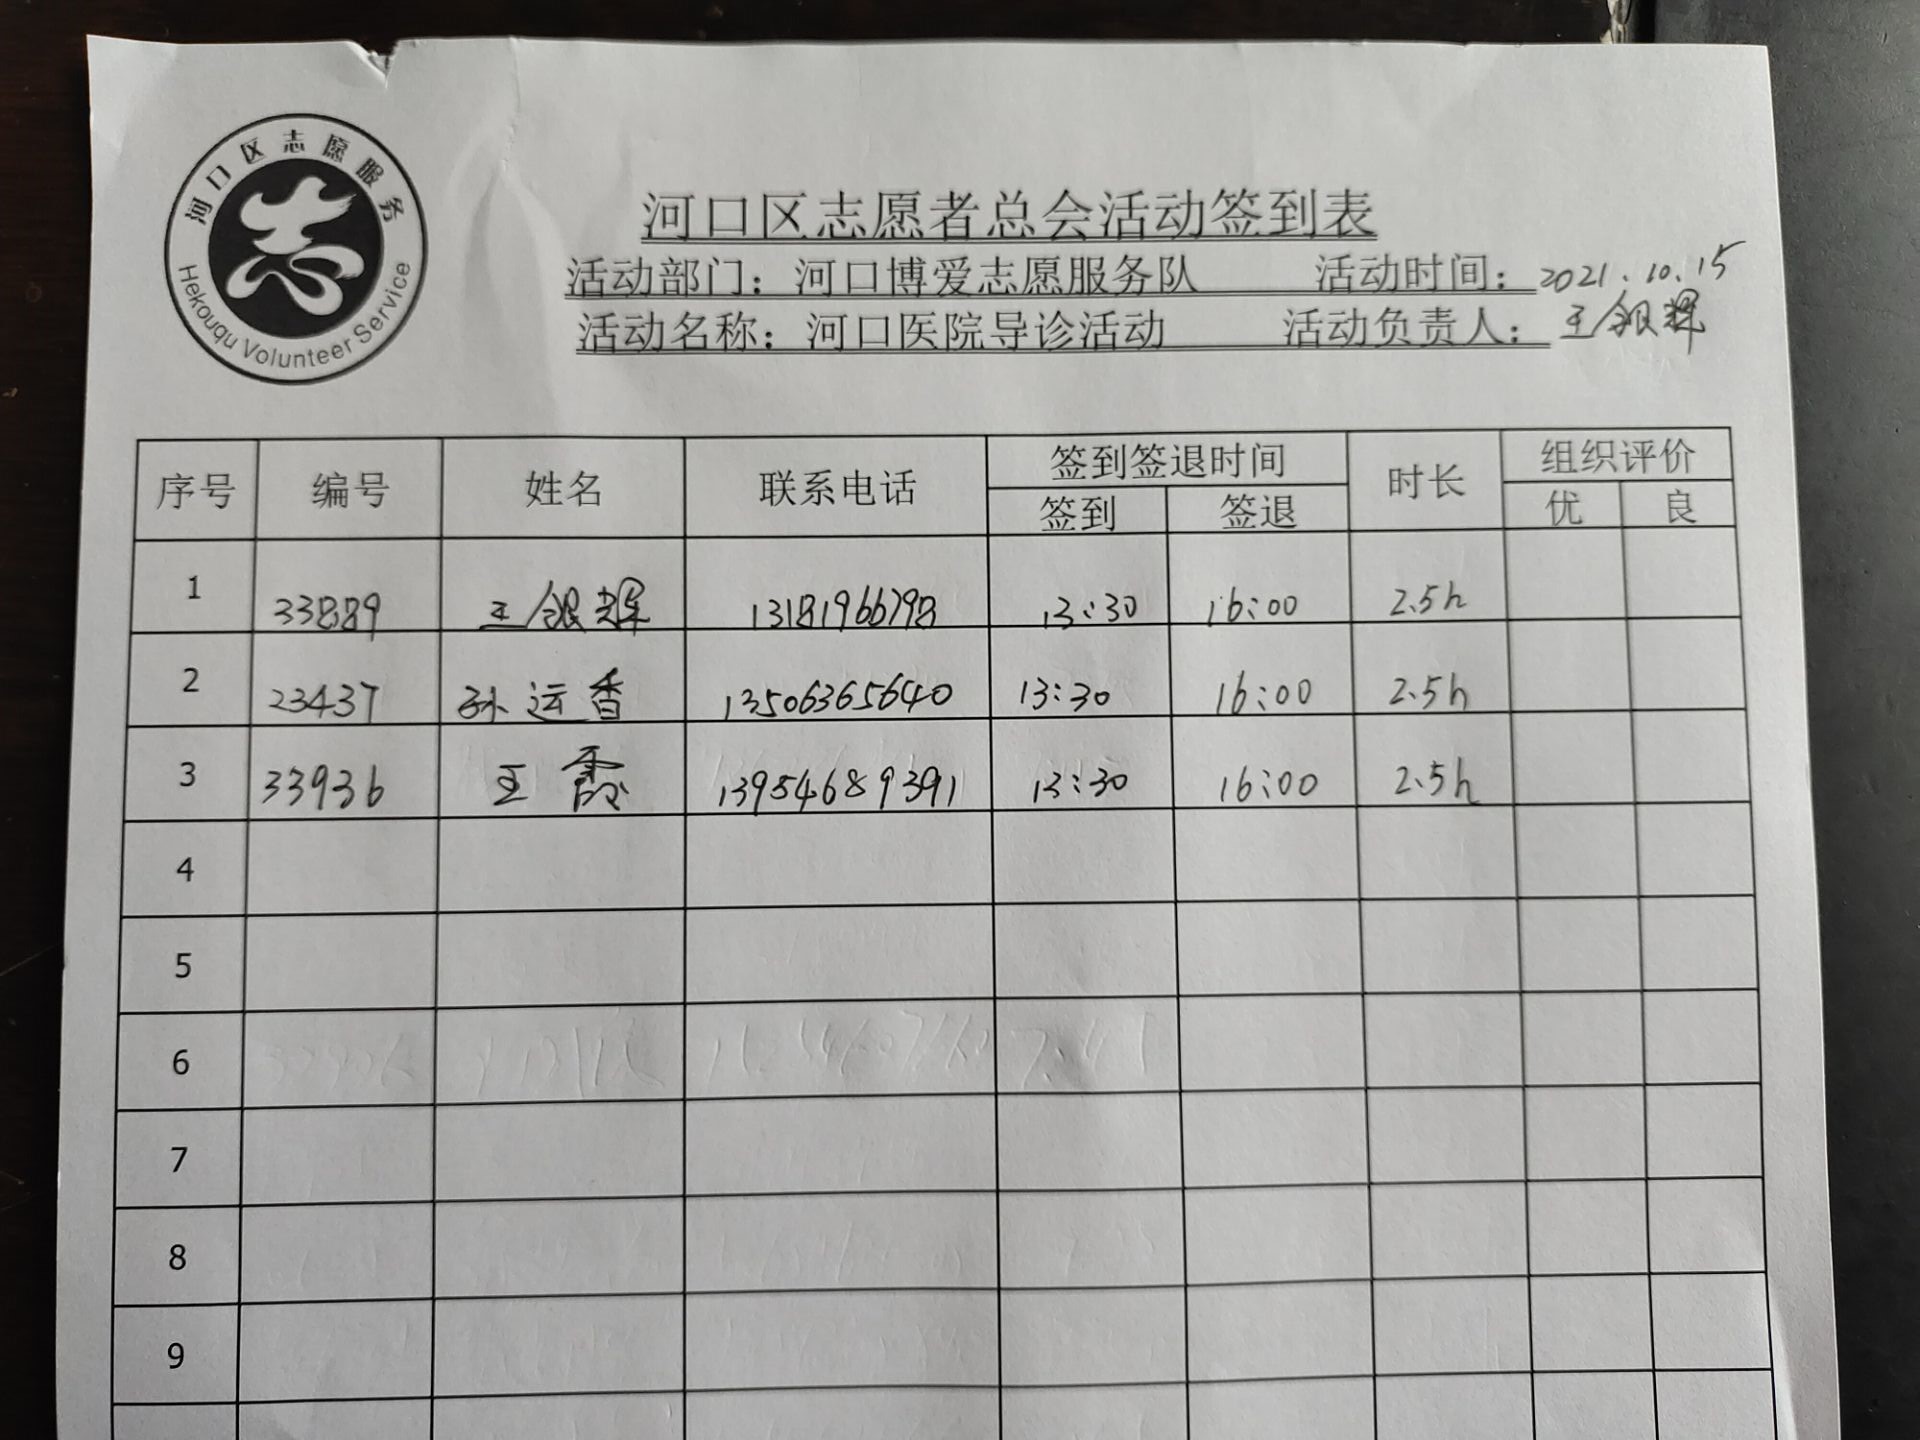 河口区志愿服务
Hekouqu Volunteer Service
河口区志愿者总会活动签到表
活动部门：河口博爱志愿服务队 活动时间：2021.10.15
活动名称：河口医院导诊活动 活动负责人：王银辉
序号 编号 姓名 联系电话 签到签退时间 时长 组织评价
签到 签退 优 良
1 33889 王银辉 13181966798 13:30 16:00 2.5h
2 23437 孙运香 13506365640 13:30 16:00 2.5h
3 33936 王霞 13954689391 13:30 16:00 2.5h
4
5
6
7
8
9